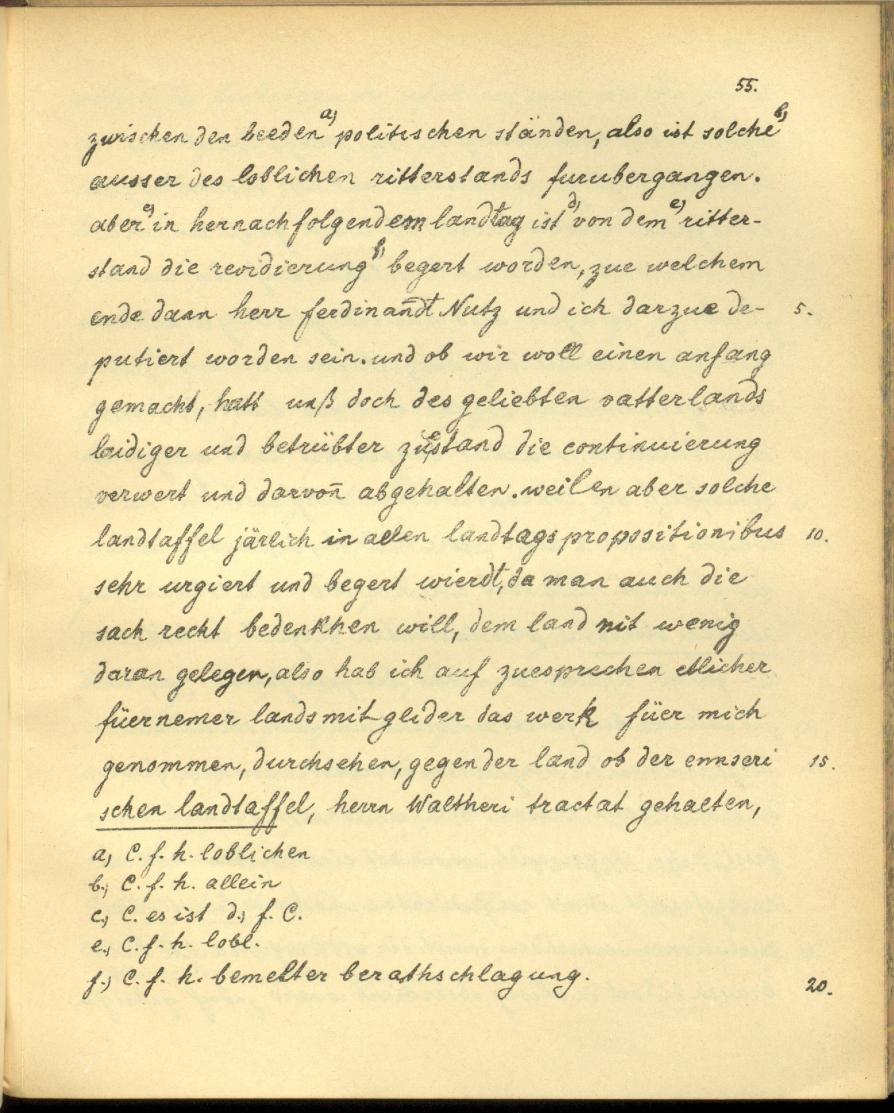 55.
zwischen den beeden a) politischen ständen, also ist solche b)
ausser des loblichen ritterstands furubergangen.
aber c) in hernachfolgendem landtag ist d) von dem e) ritter-
stand die revidierung f) begert worden, zue welchem
ende dann herr ferdinandt Nutz und ich darzue de- 5.
putiert worden sein. und ob wir woll einen anfang
gemacht, hatt unß doch des geliebten vatterlands
laidiger und betrübter zuestand die continuierung
verwert und darvon̄ abgehalten. weilen aber solche
landtaffel järlich in allen landtags propositionibus 10.
sehr urgiert und begert wierdt, da man auch die
sach recht bedenkhen will, dem land nit wenig
daran gelegen, also hab ich auf zuesprechen etlicher
füernemer landsmitglider das werk füer mich
genommen, durchsehen, gegen der land ob der ennseri 15.
schen landtaffel, herrn Waltheri tractat gehalten,
a) C. f. h. loblichen
b.) C. f. h. allein
c.) C. es ist d.) f. C.
e.) C. f. h. lobl.
f.) C. f. h. bemelter berathschlagung.
20.